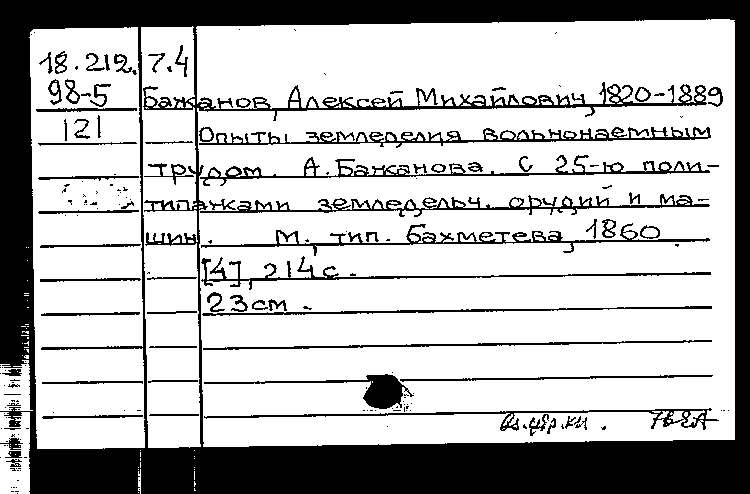 18.212. 7.4
98-5 Бажанов, Алексей Михайлович, 1820-1889
121 Опыты земледелия вольнонаемным
трудом. А. Бажанова. С 25-ю поли-
типажами земледельч. орудий и ма-
шин. М., тип. Бахметева, 1860.
[4], 214 с.
23 см.